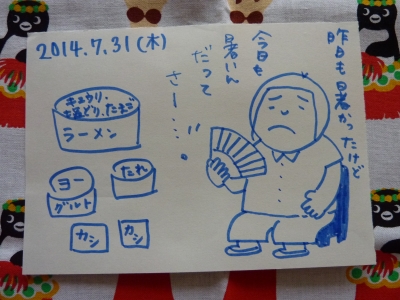 2014.7.31(木)
昨日も暑かったけど
今日も
暑いん
だって
さー…。
キュウリ、
蒸どり、たまご
ラーメン
ヨー
グルト
たれ
カシ
カシ